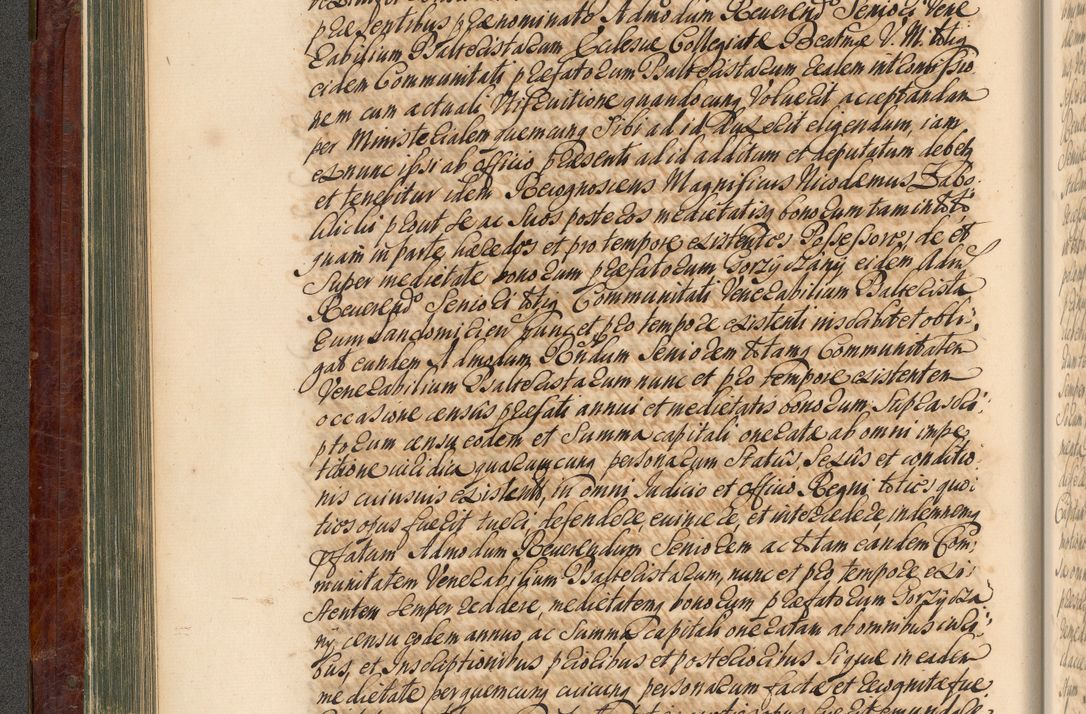 præsentibus prænominato Admodum Reverendo Seniori Vene
rabilium Psalteristarum Ecclesiæ Collegiatæ Beatmæ V. M. totiq
eidem Communitati præfatorum Psalteristarum realem intromissio
nem cum actuali Tristitutione quandocunq voluerit acceptandam
per Ministerialem quemcunq Sibi ad id Dux erit eligendum, iam
ex nunc ipsi ab officio præsenti ad id additum et deputatum debet
et tenebitur idem Recognoscens Magnificus Nicodemus Zabo
klicki prout se ac suos posteros medietatisq bonorum tam in toto
quam in parte, hæredes et pro tempore existentes Possessores de et
super medietate bonorum præfatorum Gorzyczany eidem Adm
Reverendo Seniori totiq Communitati Venerabilium Psalterista
rum Sandomirien nunc et pro tempore existenti inscribit et obli,
gat eundem Admodum Rndum Seniorem totamq Communitatem
Venerabilium Psalteristarum nunc et pro tempore existentem
occasione censûs præfati annui et medietatis bonorum Suprascri,
ptorum censu eodem et Summa capitali oneratæ ab omni impe
titione iuridica quarumcunq personarum Statûs, Sexûs et conditio
nis cuiusvis existent, in omni Iudicio et officio Regni, toties quo
ties opus fuerit tueri, defendere, evincere, et intercedere indemnemq
præfatum Admodum Reverendum Seniorem ac totam eandem Com,
munitatem Venerabilium Psalteristarum, nunc et pro tempore exis
stentem semper reddere, medietatemq bonorum præfatorum Gorzycza
ny censu eodem annuo ac Summa capitali oneratam ab omnibus iuri,
bus, et Inscriptionibus prioribus et posterioribus Siquæ in eadem
medietate per quemcunq cuicunq personarum factæ et recognitæ fue